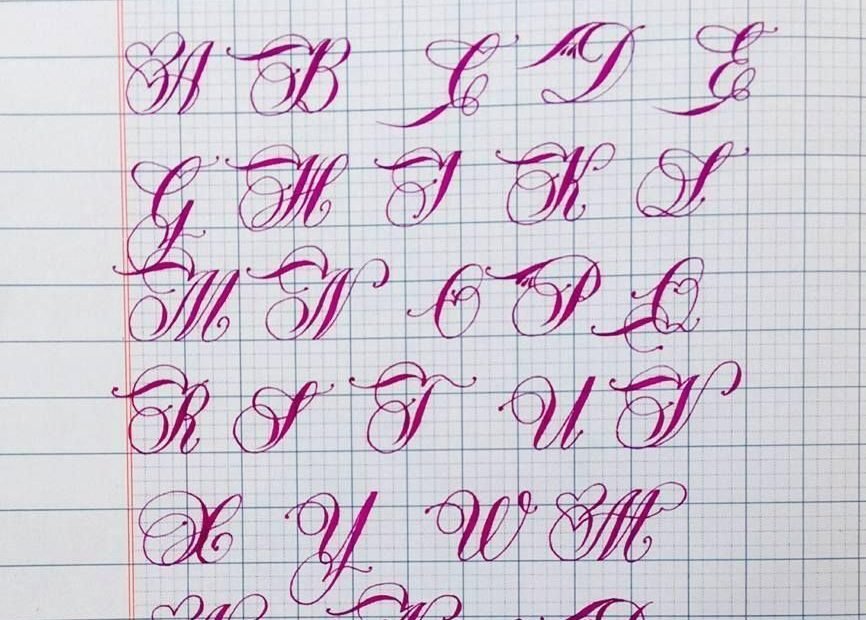 A B C D E
G H I K L
M N O P Q
R S T U V
X Y W M